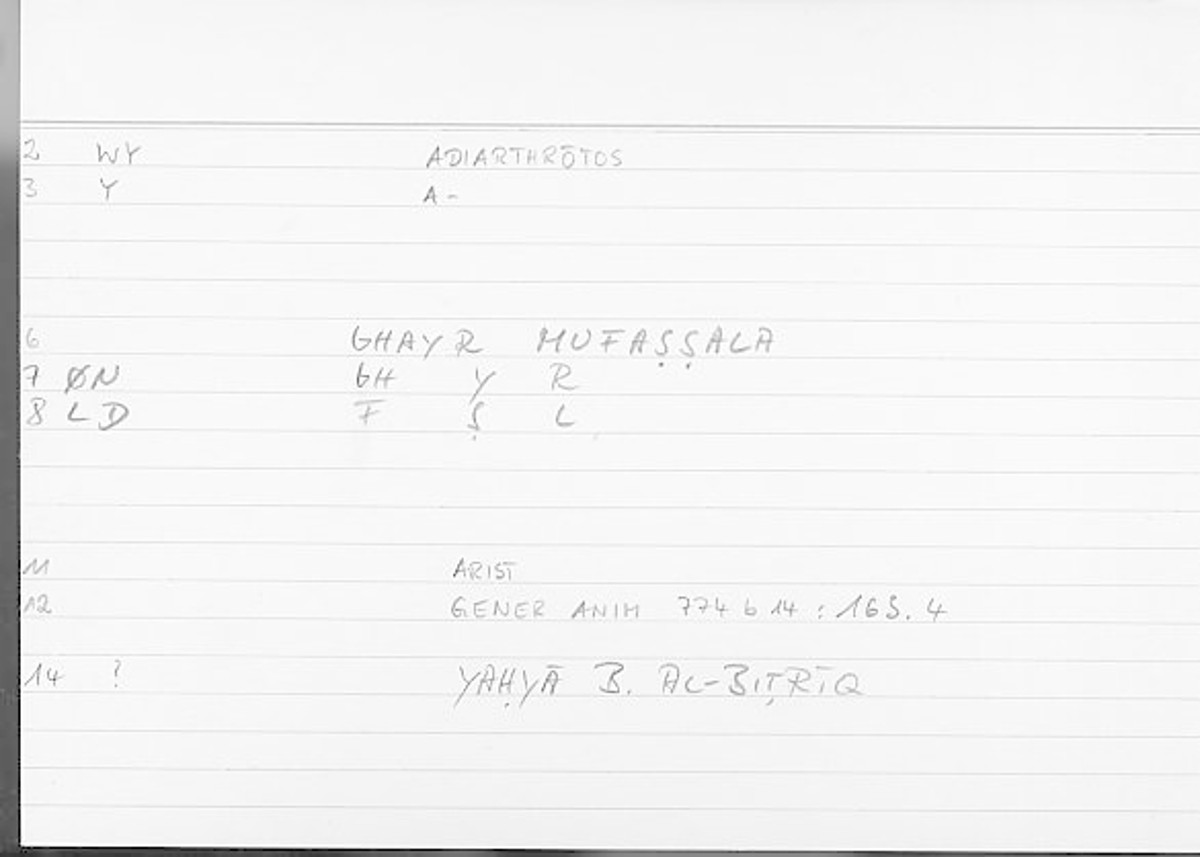 2 WY ADIARTHRŌTOS
3 Y A-
6 GHAYR MUFAṢṢALA
7 ØN GH Y R
8 LD F Ṣ L
11 ARIST
12 GENER ANIM 774 b 14 : 165.4
14 ? YAḤYĀ B. AL-BIṬRĪQ